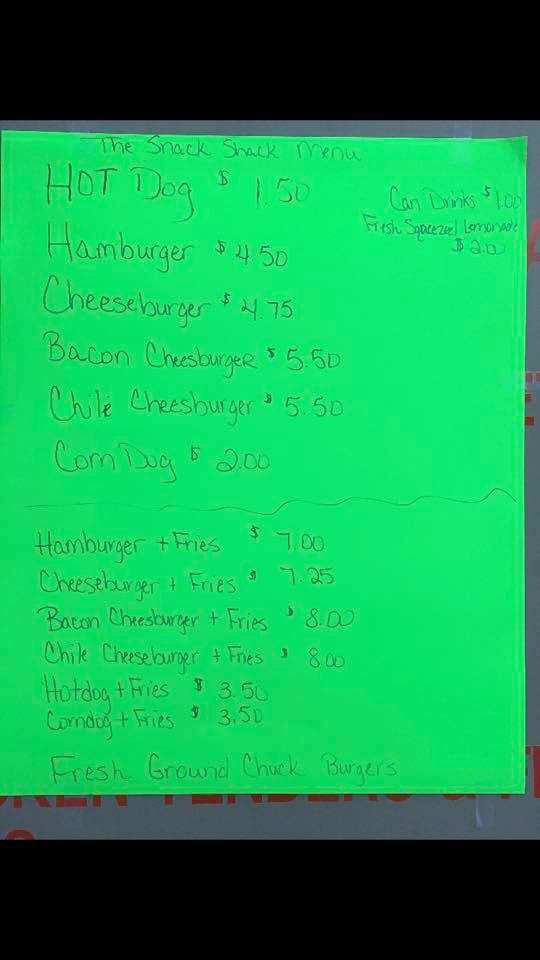 The Snack Shack Menu
HOT Dog $ 1.50
Can Drinks $ 1.00
Fresh Sqaeezed Lemonade
$ 2.00
Hamburger $ 4.50
Cheeseburger $ 4.75
Bacon Cheesburger $ 5.50
Chile Cheesburger $ 5.50
Corn Dog $ 2.00
Hamburger + Fries $ 7.00
Cheeseburger + Fries $ 7.25
Bacon Cheesburger + Fries $ 8.00
Chile Cheeseburger + Fries $ 8.00
Hotdog + Fries $ 3.50
Corndog + Fries $ 3.50
Fresh Ground Chuck Burgers